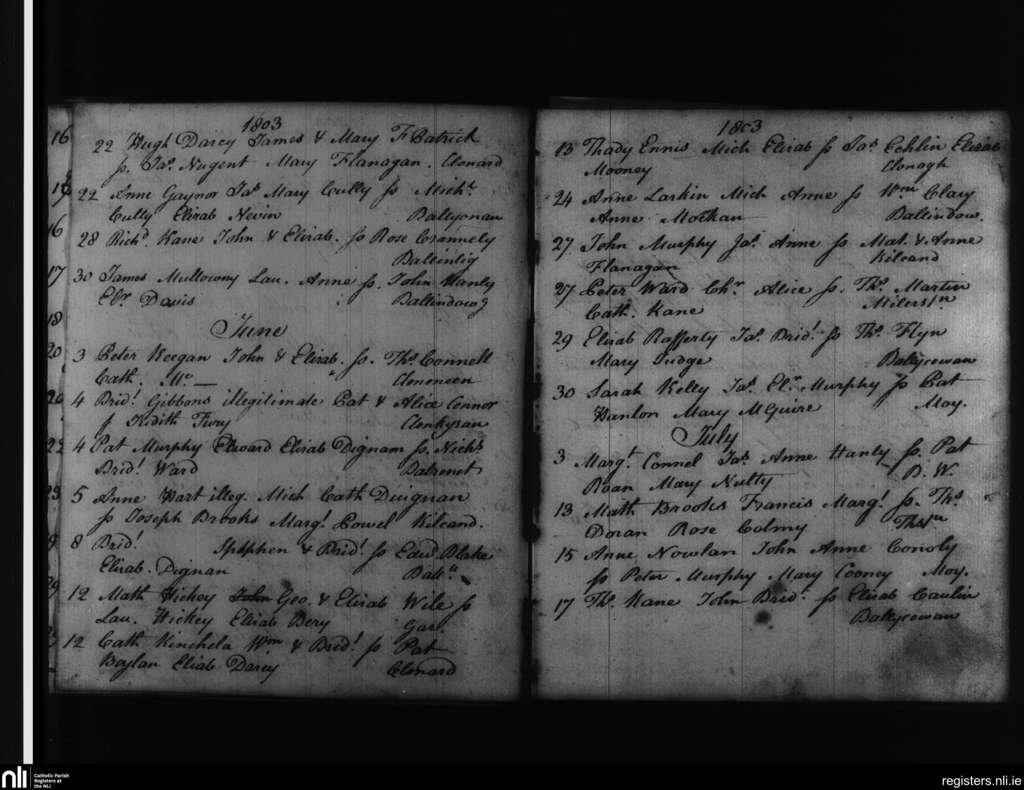 1803
22 Hugh Darcy James & Mary F Patrick
ss. Jas. Nugent Mary Flanagan. Clonard
22 Anne Gaynor Jas Mary Cully ss Michl.
Cully Elizab Nevin Ballyonan
28 Richd. Kane John & Elizab. ss Rose Crannely
30 James Mullowny Lau. Anne ss. John Hanly
Elr. Davis
June
3 Peter Keegan John & Elizab. ss. Ths. Connell
Cath. Mc —
4 Brid! Gibbons illegitimate Pat & Alice Connor
4 Pat Murphy Edward Elizab Dignam ss. Nichs
Brid! Ward
5 Anne Hart illeg. Mich Cath Duignan
ss Joseph Brooks Marg! Powel Kilcand.
8 Brid! Stephen & Brid! ss Edwd Blake
Elizab. Dignan
12 Math Hickey Geo. & Elizab Wile ss
Lau. Hickey Elizab Bery Gar.
12 Cath Kinchela Wm & Brid! ss Pat
Boylan Elizab Darcy Clonard
16
17
18
20
1803
13 Thady Ennis Mich Elizab ss Jas Echlin Elizab
Mooney Clonogh
24 Anne Larkin Mich Anne ss Wm Clary
Anne
27 John Murphy Jas. Anne ss Mat. & Anne
Flanagan Kilcand
27 Peter Ward Chr. Alice ss. Ths. Martin
Cath. Kane
29 Elizab Rafferty Jas. Brid! ss Ths. Flyn
Mary Judge Ballycowan
30 Sarah Kelly Jas. Elr. Murphy ss Pat
Hanlon Mary McGuire Moy.
July
3 Margt. Connel Jas Anne Hanly ss Pat
Roan Mary Nulty B. W.
13 Math Brooks Francis Marg! ss. Ths
Doran Rose Colmy
15 Anne Nowlan John Anne Conoly
ss Peter Murphy Mary Cooney Moy.
17 Ths. Kane John Brid! ss Elizab Caulin
Ballycowan
nli Catholic Parish
Registers at
the NLI
registers.nli.ie